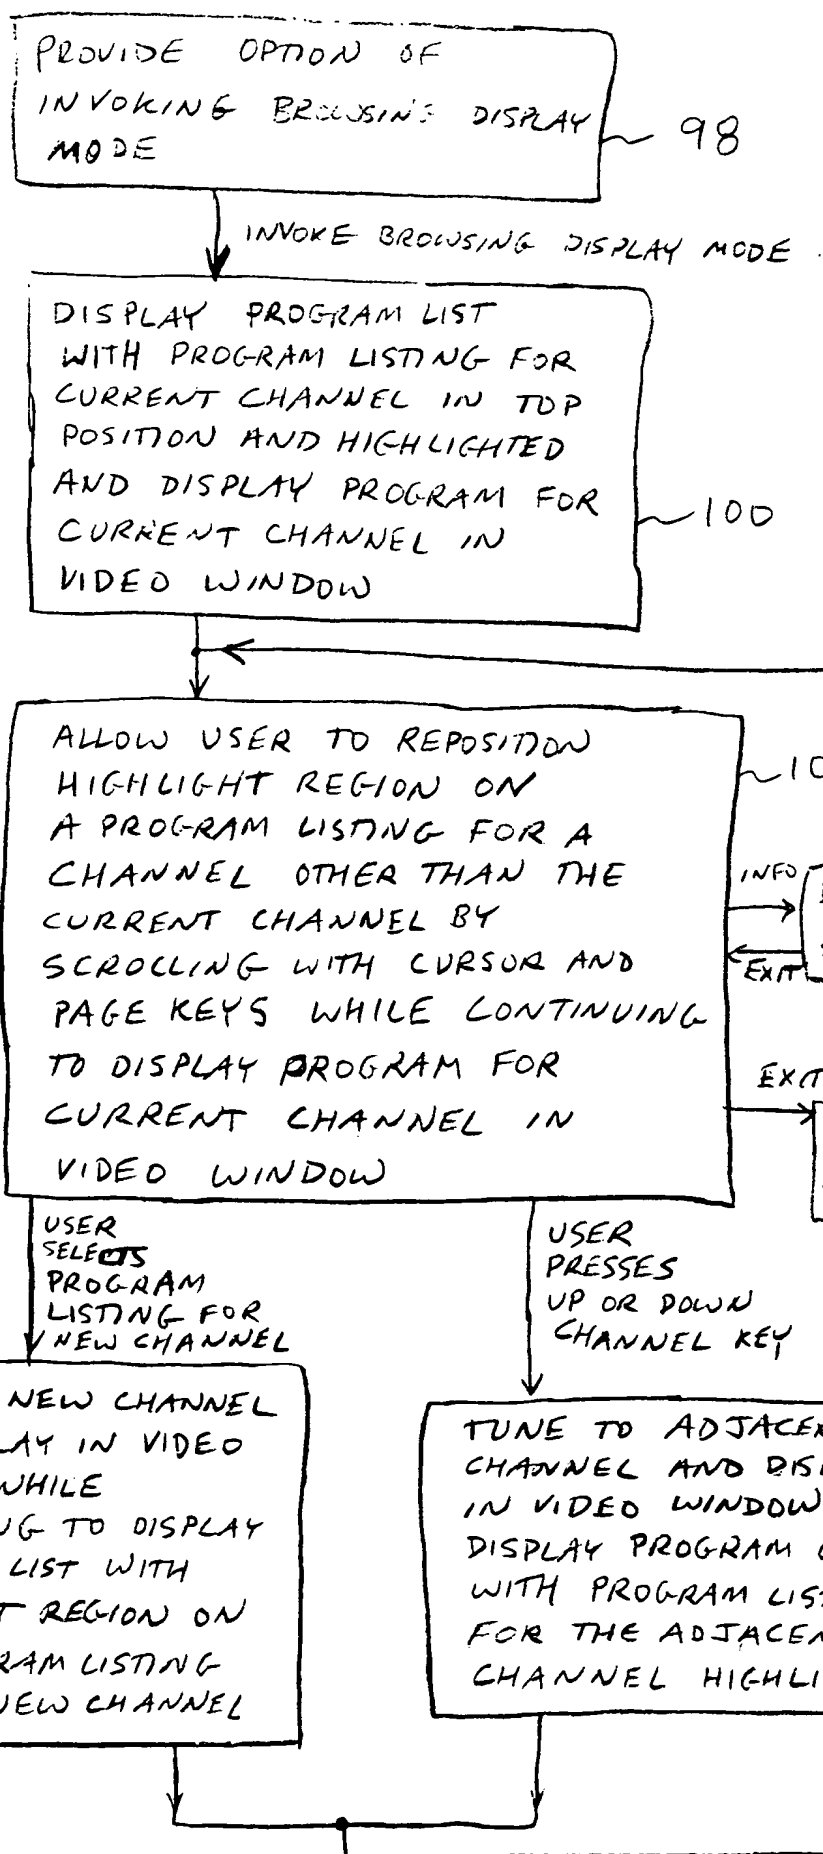 PROVIDE OPTION OF
INVOKING BROWSING DISPLAY
MODE
98
INVOKE BROWSING DISPLAY MODE
DISPLAY PROGRAM LIST
WITH PROGRAM LISTING FOR
CURRENT CHANNEL IN TOP
POSITION AND HIGHLIGHTED
AND DISPLAY PROGRAM FOR
CURRENT CHANNEL IN
VIDEO WINDOW
100
ALLOW USER TO REPOSITION
HIGHLIGHT REGION ON
A PROGRAM LISTING FOR A
CHANNEL OTHER THAN THE
CURRENT CHANNEL BY
SCROLLING WITH CURSOR AND
PAGE KEYS WHILE CONTINUING
TO DISPLAY PROGRAM FOR
CURRENT CHANNEL IN
VIDEO WINDOW
INFO
EXIT
EXIT
USER
SELECTS
PROGRAM
LISTING FOR
NEW CHANNEL
USER
PRESSES
UP OR DOWN
CHANNEL KEY
NEW CHANNEL
IN VIDEO
WHILE
TO DISPLAY
LIST WITH
REGION ON
LISTING
NEW CHANNEL
TUNE TO
CHANNEL AND
IN VIDEO WINDOW
DISPLAY PROGRAM
WITH PROGRAM
FOR THE
CHANNEL